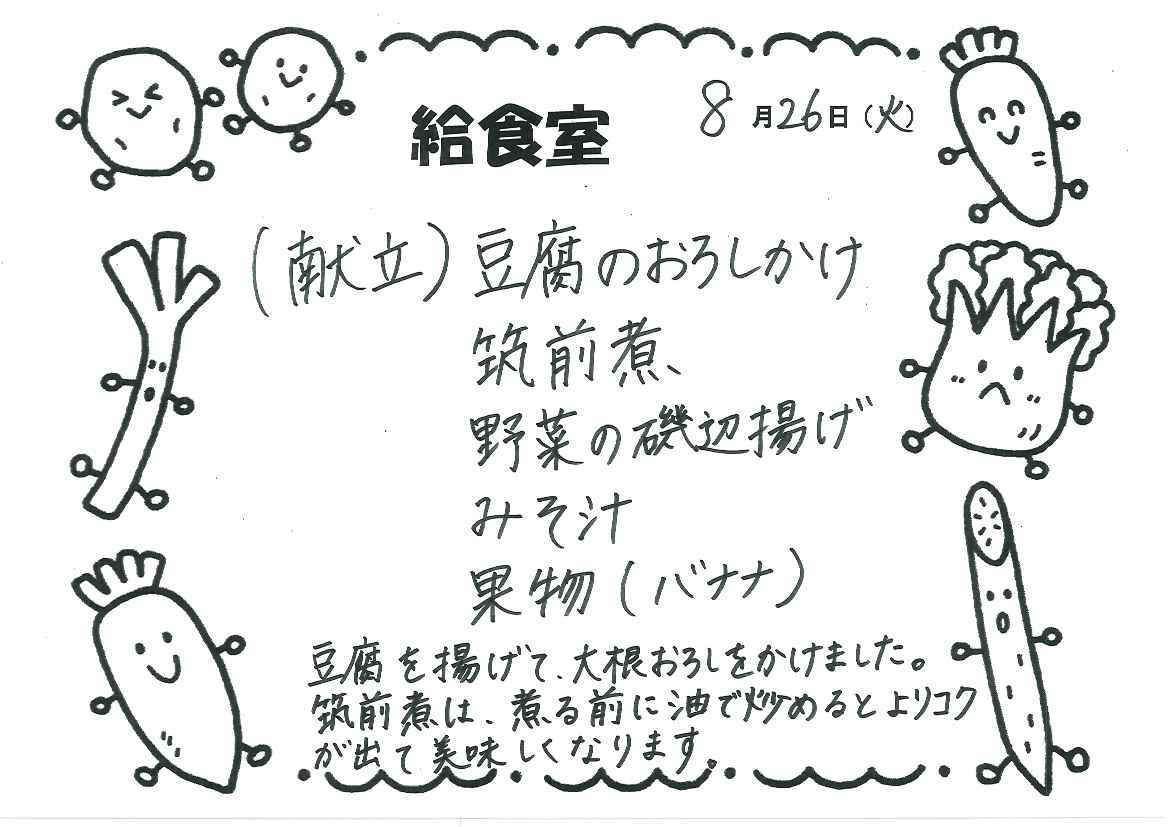 給食室
8月26日(火)
(献立) 豆腐のおろしかけ
筑前煮、
野菜の磯辺揚げ
みそ汁
果物(バナナ)
豆腐を揚げて、大根おろしをかけました。
筑前煮は、煮る前に油で炒めるとよりコク
が出て美味しくなります。